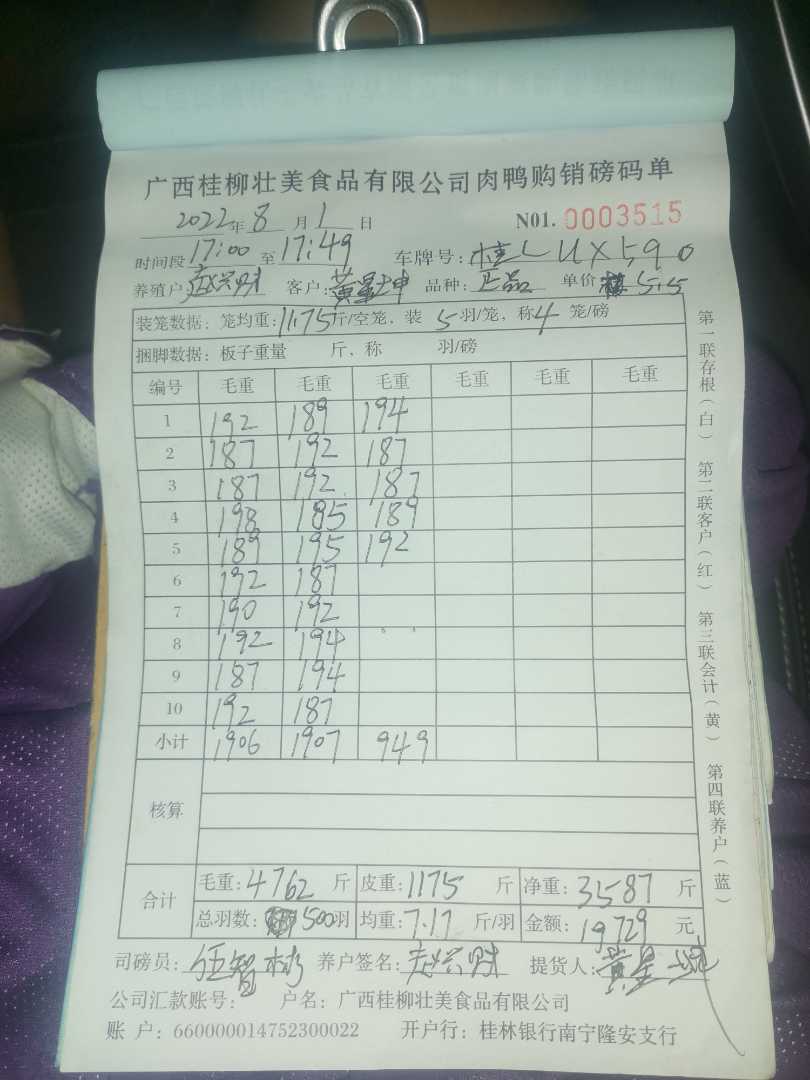 广西桂柳壮美食品有限公司肉鸭购销磅码单
2022年 8 月 1 日 N01. 0003515
时间段 17:00 至 17:49 车牌号: 桂LUX590
养殖户: 赵兴财 客户: 黄星坤 品种: 正品 单价 5.5
装笼数据: 笼均重: 11.75斤/空笼, 装 5 羽/笼, 称 4 笼/磅
捆脚数据: 板子重量 斤, 称 羽/磅
编号 毛重 毛重 毛重 毛重 毛重 毛重
1 192 189 194
2 187 192 187
3 187 192 187
4 198 185 189
5 189 195 192
6 192 187
7 190 192
8 192 194
9 187 194
10 192 187
小计 1906 1907 949
核算
合计 毛重: 4762 斤 皮重: 1175 斤 净重: 3587 斤
总羽数: 500羽 均重: 7.17 斤/羽 金额: 19729 元
司磅员: 伍智彬 养户签名: 赵兴财 提货人: 黄星
公司汇款账号: 户名: 广西桂柳壮美食品有限公司
账 户: 660000014752300022 开户行: 桂林银行南宁隆安支行
第一联存根(白) 第二联客户(红) 第三联会计(黄) 第四联养户(蓝)